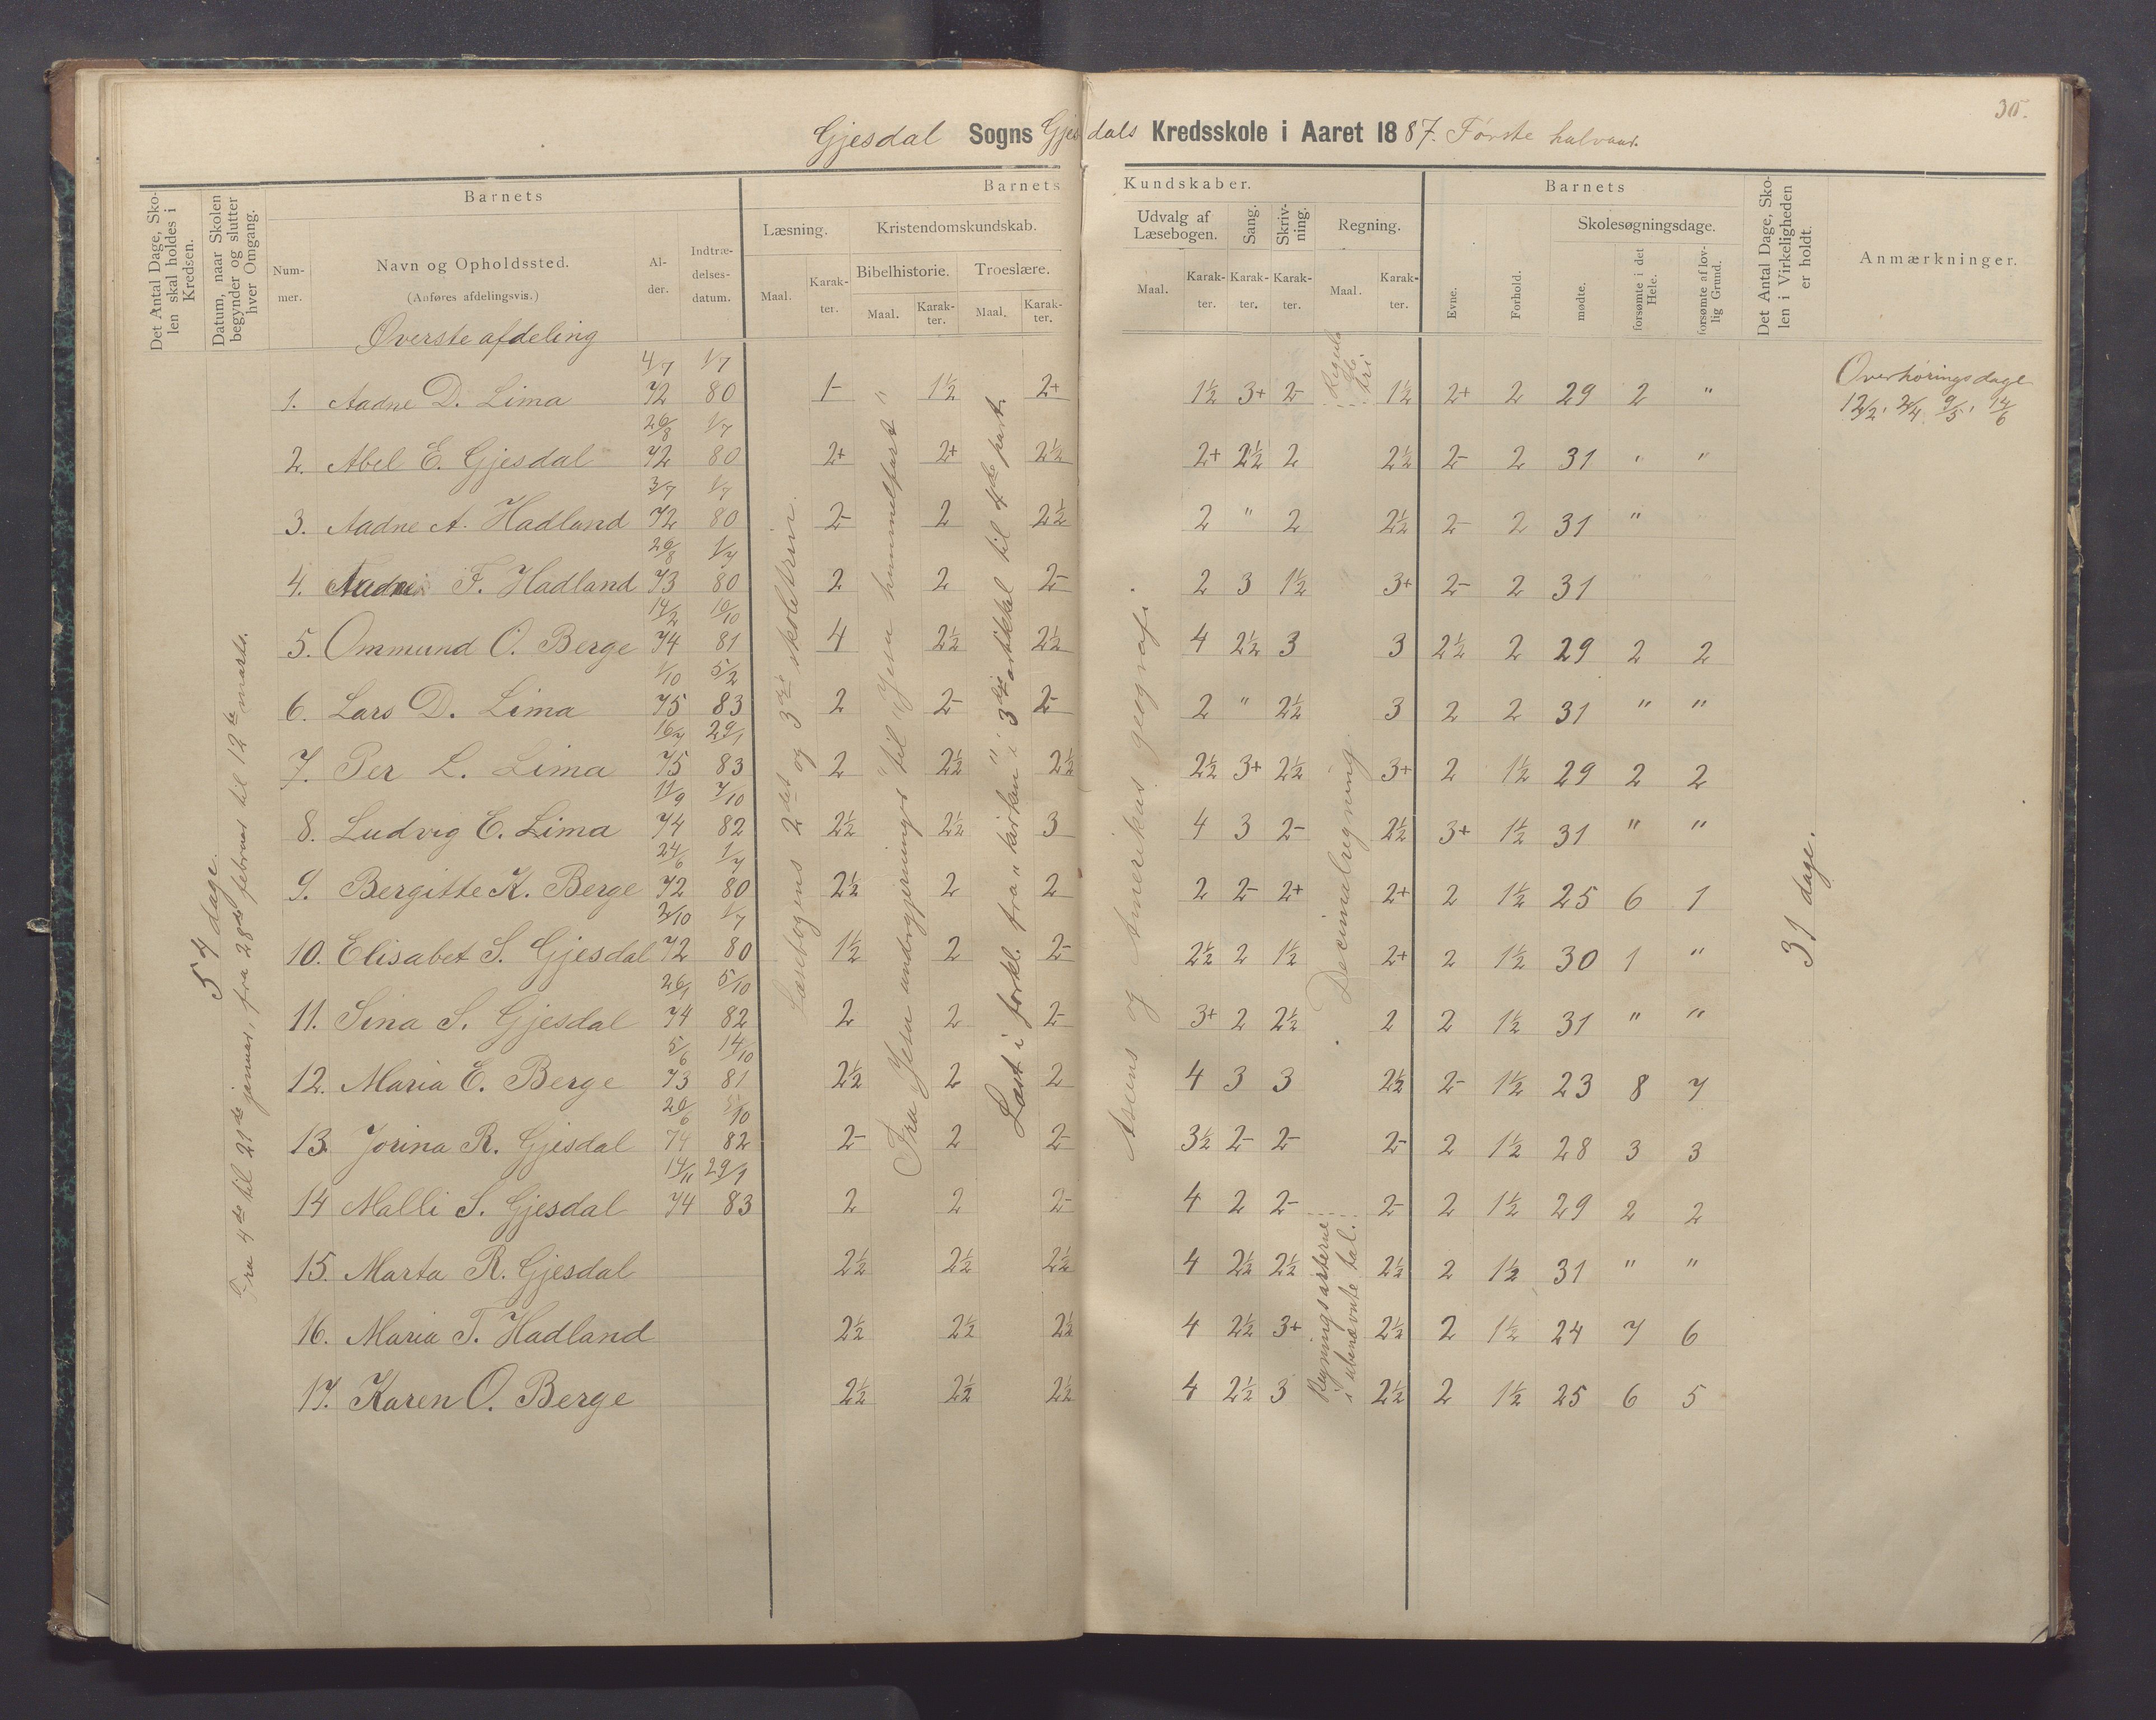 30.
Gjesdal Sogns Gjesdals Kredsskole i Aaret 1887. Første halvaar.
Det Antal Dage, Skolen skal holdes i Kredsen.
Datum, naar Skolen begynder og slutter hver Omgang.
Barnets
Nummer.
Navn og Opholdssted.
(Anføres afdelingsvis.)
Alder.
Indtrædelsesdatum.
Barnets Kundskaber.
Læsning.
Maal.
Karakter.
Kristendomskundskab.
Bibelhistorie.
Maal.
Karakter.
Troeslære.
Maal.
Karakter.
Udvalg af Læsebogen.
Maal.
Karakter.
Sang.
Karakter.
Skrivning.
Karakter.
Regning.
Maal.
Karakter.
Barnets
Evne.
Forhold.
Skolesøgningsdage.
mødte.
forsømte i det Hele.
forsømte af lovlig Grund.
Det Antal Dage, Skolen i Virkeligheden er holdt.
Anmærkninger.
Øverste afdeling
54 dage.
Fra 4de til 21de januar, fra 28de februar til 12te marts.
Læsebogens 2det og 3die skoletrin.
Fra "Jesu undergjerninger" til "Jesu himmelfart"
Læst i forkl. fra "kirken" i 3die artikkel til 4de part.
Asiens og Amerikas geografi.
Regula de tri
Decimalregning.
Regningsarterne i ubenævnte tal.
31 dage.
Overhøringsdage
12/2, 2/4, 9/5, 14/6
1. Aadne D. Lima 4/7 72 1/7 80 1- 1½ 2+ 1½ 3+ 2- 1½ 2+ 2 29 2 "
2. Abel E. Gjesdal 26/8 72 1/7 80 2+ 2+ 2½ 2+ 2½ 2 2½ 2- 2 31 " "
3. Aadne A. Hadland 3/7 72 1/7 80 2- 2 2½ 2 " 2 2½ 2- 2 31 "
4. F. Hadland 26/8 73 1/7 80 2 2 2- 2 3 1½ 3+ 2- 2 31
5. Ommund O. Berge 14/2 74 10/10 81 4 2½ 2½ 4 2½ 3 3 2½ 2 29 2 2
6. Lars D. Lima 1/10 75 5/2 83 2 2- 2- 2 " 2½ 3 2 2 31 " "
7. Per L. Lima 16/7 75 29/1 83 2 2½ 2½ 2½ 3+ 2½ 3+ 2 1½ 29 2 2
8. Ludvig E. Lima 11/9 74 7/10 82 2½ 2½ 3 4 3 2- 2½ 3+ 1½ 31 " "
9. Bergitte K. Berge 24/6 72 1/7 80 2½ 2 2 2 2- 2+ 2+ 2 1½ 25 6 1
10. Elisabet S. Gjesdal 3/10 72 1/7 80 1½ 2 2- 2½ 2 1½ 2+ 2 1½ 30 1 "
11. Sina S. Gjesdal 26/1 74 5/10 82 2 2 2- 3+ 2 2½ 2 2 1½ 31 " "
12. Maria E. Berge 5/6 73 14/10 81 2½ 2 2 4 3 3 2½ 2- 1½ 23 8 7
13. Jorina R. Gjesdal 26/6 74 5/10 82 2- 2 2- 3½ 2- 2- 2- 2 1½ 28 3 3
14 Malli S. Gjesdal 14/11 74 29/1 83 2 2 2- 4 2 2- 2- 2 1½ 29 2 2
15. Marta R. Gjesdal 2½ 2½ 2½ 4 2½ 2½ 2½ 2 1½ 31 " "
16. Maria T. Hadland 2½ 2½ 2½ 4 2½ 3+ 2½ 2 1½ 24 7 6
17. Karen O. Berge 2½ 2½ 2½ 4 2½ 3 2½ 2 1½ 25 6 5